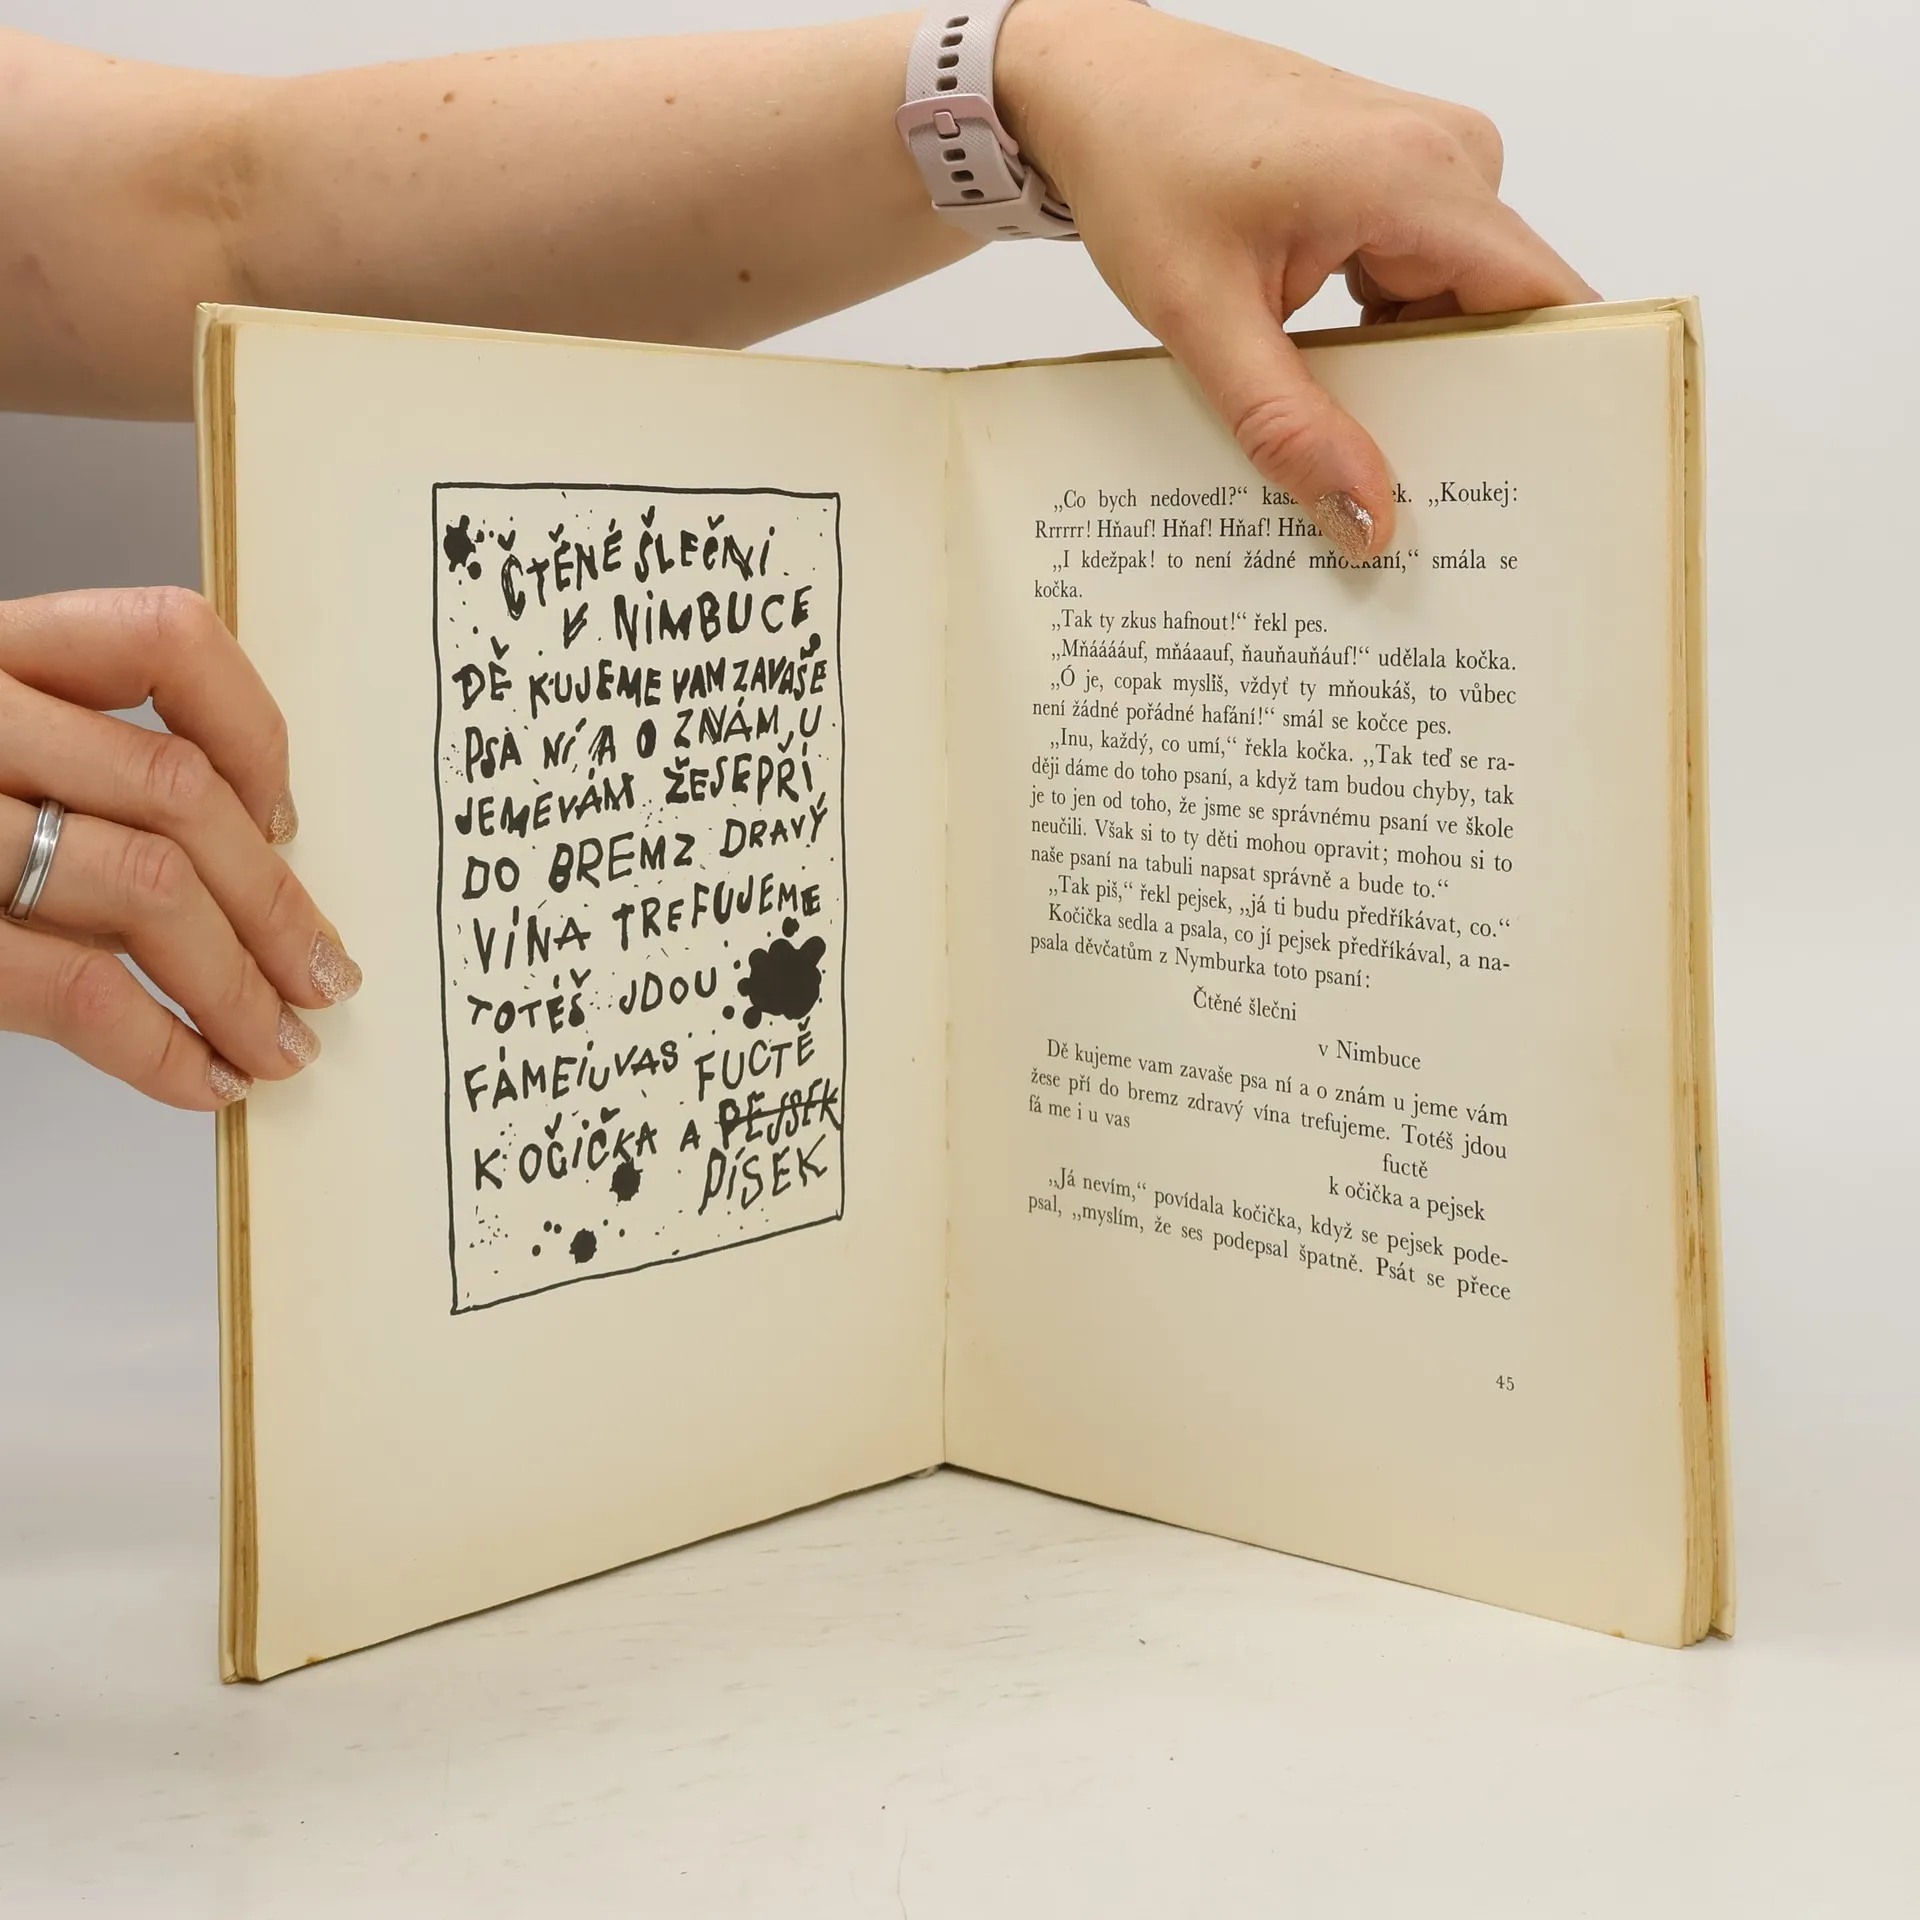 ČTĚNÉ ŠLEČNI
V NIMBUCE
DĚ KUJEME VAM ZAVAŠE
PSA NÍ A O ZNÁM U
JEMEVÁM ŽESEPŘÍ
DO BREMZ ZDRAVÝ
VÍNA TREFUJEME
TOTÉŠ JDOU
FÁMEIUVAS FUCTĚ
K OČIČKA A PEJSEK
PÍSEK
„Co bych nedovedl?“ ek. „Koukej:
Rrrrrr! Hňauf! Hňaf! Hňaf!
„I kdežpak! to není žádné mňoukání,“ smála se
kočka.
„Tak ty zkus hafnout!“ řekl pes.
„Mňááááuf, mňáaauf, ňauňauňáuf!“ udělala kočka.
„Ó je, copak mysliš, vždyť ty mňoukáš, to vůbec
není žádné pořádné hafání!“ smál se kočce pes.
„Inu, každý, co umí,“ řekla kočka. „Tak teď se ra-
ději dáme do toho psaní, a když tam budou chyby, tak
je to jen od toho, že jsme se správnému psaní ve škole
neučili. Však si to ty děti mohou opravit; mohou si to
naše psaní na tabuli napsat správně a bude to.“
„Tak piš,“ řekl pejsek, „já ti budu předříkávat, co.“
Kočička sedla a psala, co jí pejsek předříkával, a na-
psala děvčatům z Nymburka toto psaní:
Čtěné šlečni
v Nimbuce
Dě kujeme vam zavaše psa ní a o znám u jeme vám
žese pří do bremz zdravý vína trefujeme. Totéš jdou
fá me i u vas
fuctě
k očička a pejsek
„Já nevím,“ povídala kočička, když se pejsek pode-
psal, „myslím, že ses podepsal špatně. Psát se přece
45